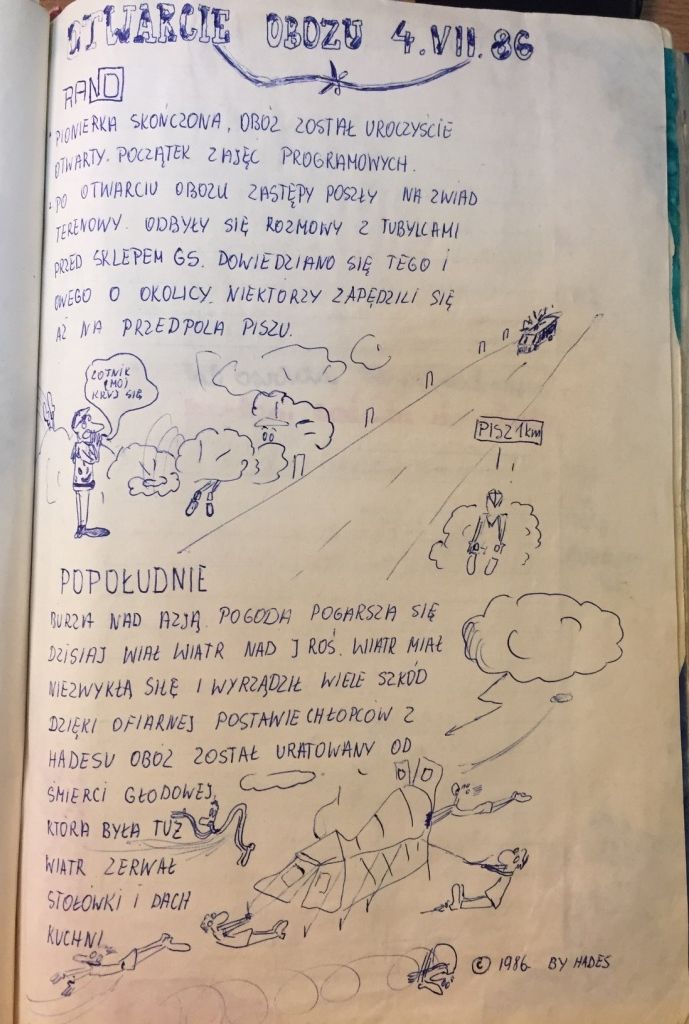 OTWARCIE OBOZU 4.VII.86
RANO
• PIONIERKA SKOŃCZONA, OBÓZ ZOSTAŁ UROCZYŚCIE
OTWARTY. POCZĄTEK ZAJĘĆ PROGRAMOWYCH.
• PO OTWARCIU OBOZU ZASTĘPY POSZŁY NA ZWIAD
TERENOWY. ODBYŁY SIĘ ROZMOWY Z TUBYLCAMI
PRZED SKLEPEM GS. DOWIEDZIANO SIĘ TEGO I
OWEGO O OKOLICY. NIEKTÓRZY ZAPĘDZILI SIĘ
AŻ NA PRZEDPOLA PISZU.
LOTNIK
KRYJ SIĘ
PISZ 1km
POPOŁUDNIE
BURZA NAD AZJĄ. POGODA POGARSZA SIĘ
DZISIAJ WIAŁ WIATR NAD J ROŚ. WIATR MIAŁ
NIEZWYKŁĄ SIŁĘ I WYRZĄDZIŁ WIELE SZKÓD
DZIĘKI OFIARNEJ POSTAWIE CHŁOPCÓW Z
HADESU OBÓZ ZOSTAŁ URATOWANY OD
ŚMIERCI GŁODOWEJ,
KTÓRA BYŁA TUŻ
WIATR ZERWAŁ
STOŁÓWKI I DACH
KUCHNI
© 1986 BY HADES